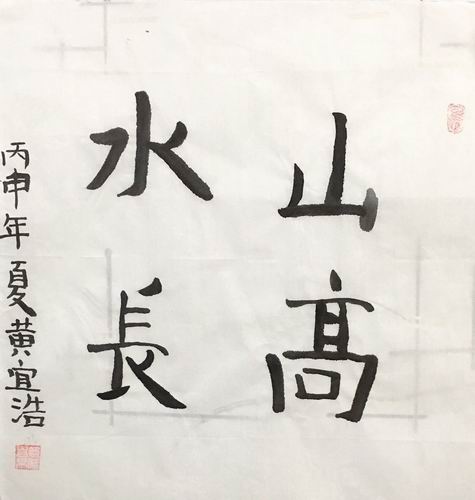 山高
水長
丙申年夏黄宜浩